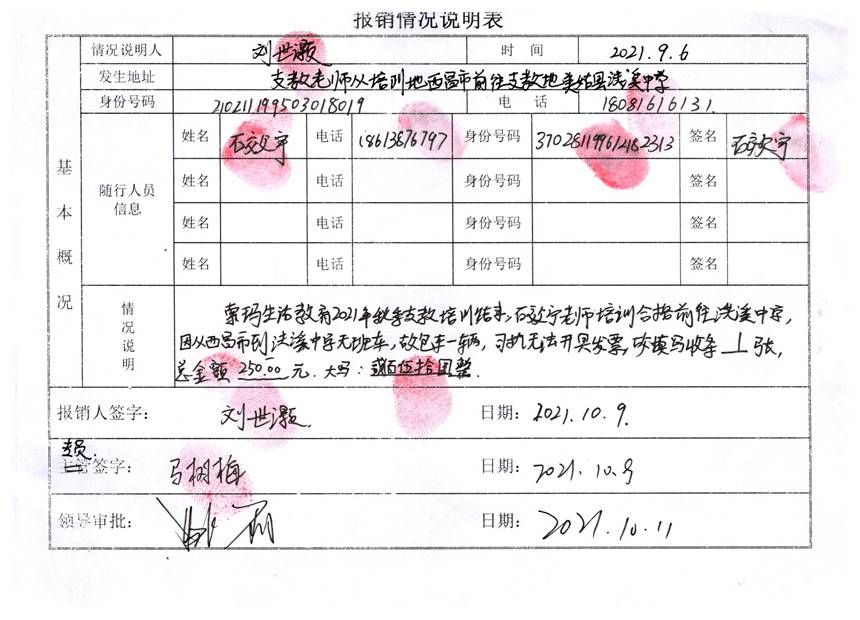 报销情况说明表
情况说明人 刘世灏 时 间 2021.9.6
发生地址 支教老师从培训地西昌市前往支教地美姑县洪溪中学
身份号码 210211199503018019 电 话 18081616131.
基本概况
随行人员信息
姓名 电话 18613876797 身份号码 签名
姓名 电话 身份号码 签名
姓名 电话 身份号码 签名
姓名 电话 身份号码 签名
情况说明
索玛生活教育2021年秋季支教培训结束,老师培训合格前往洪溪中学,
因从西昌市到洪溪中学无班车,故包车一辆,司机无法开具发票,故填写收条 1 张,
总金额 250.00 元. 大写: 贰佰伍拾圆整.
报销人签字: 刘世灏 日期: 2021.10.9.
专员
主管签字: 马树梅 日期: 2021.10.9
领导审批: 日期: 2021.10.11